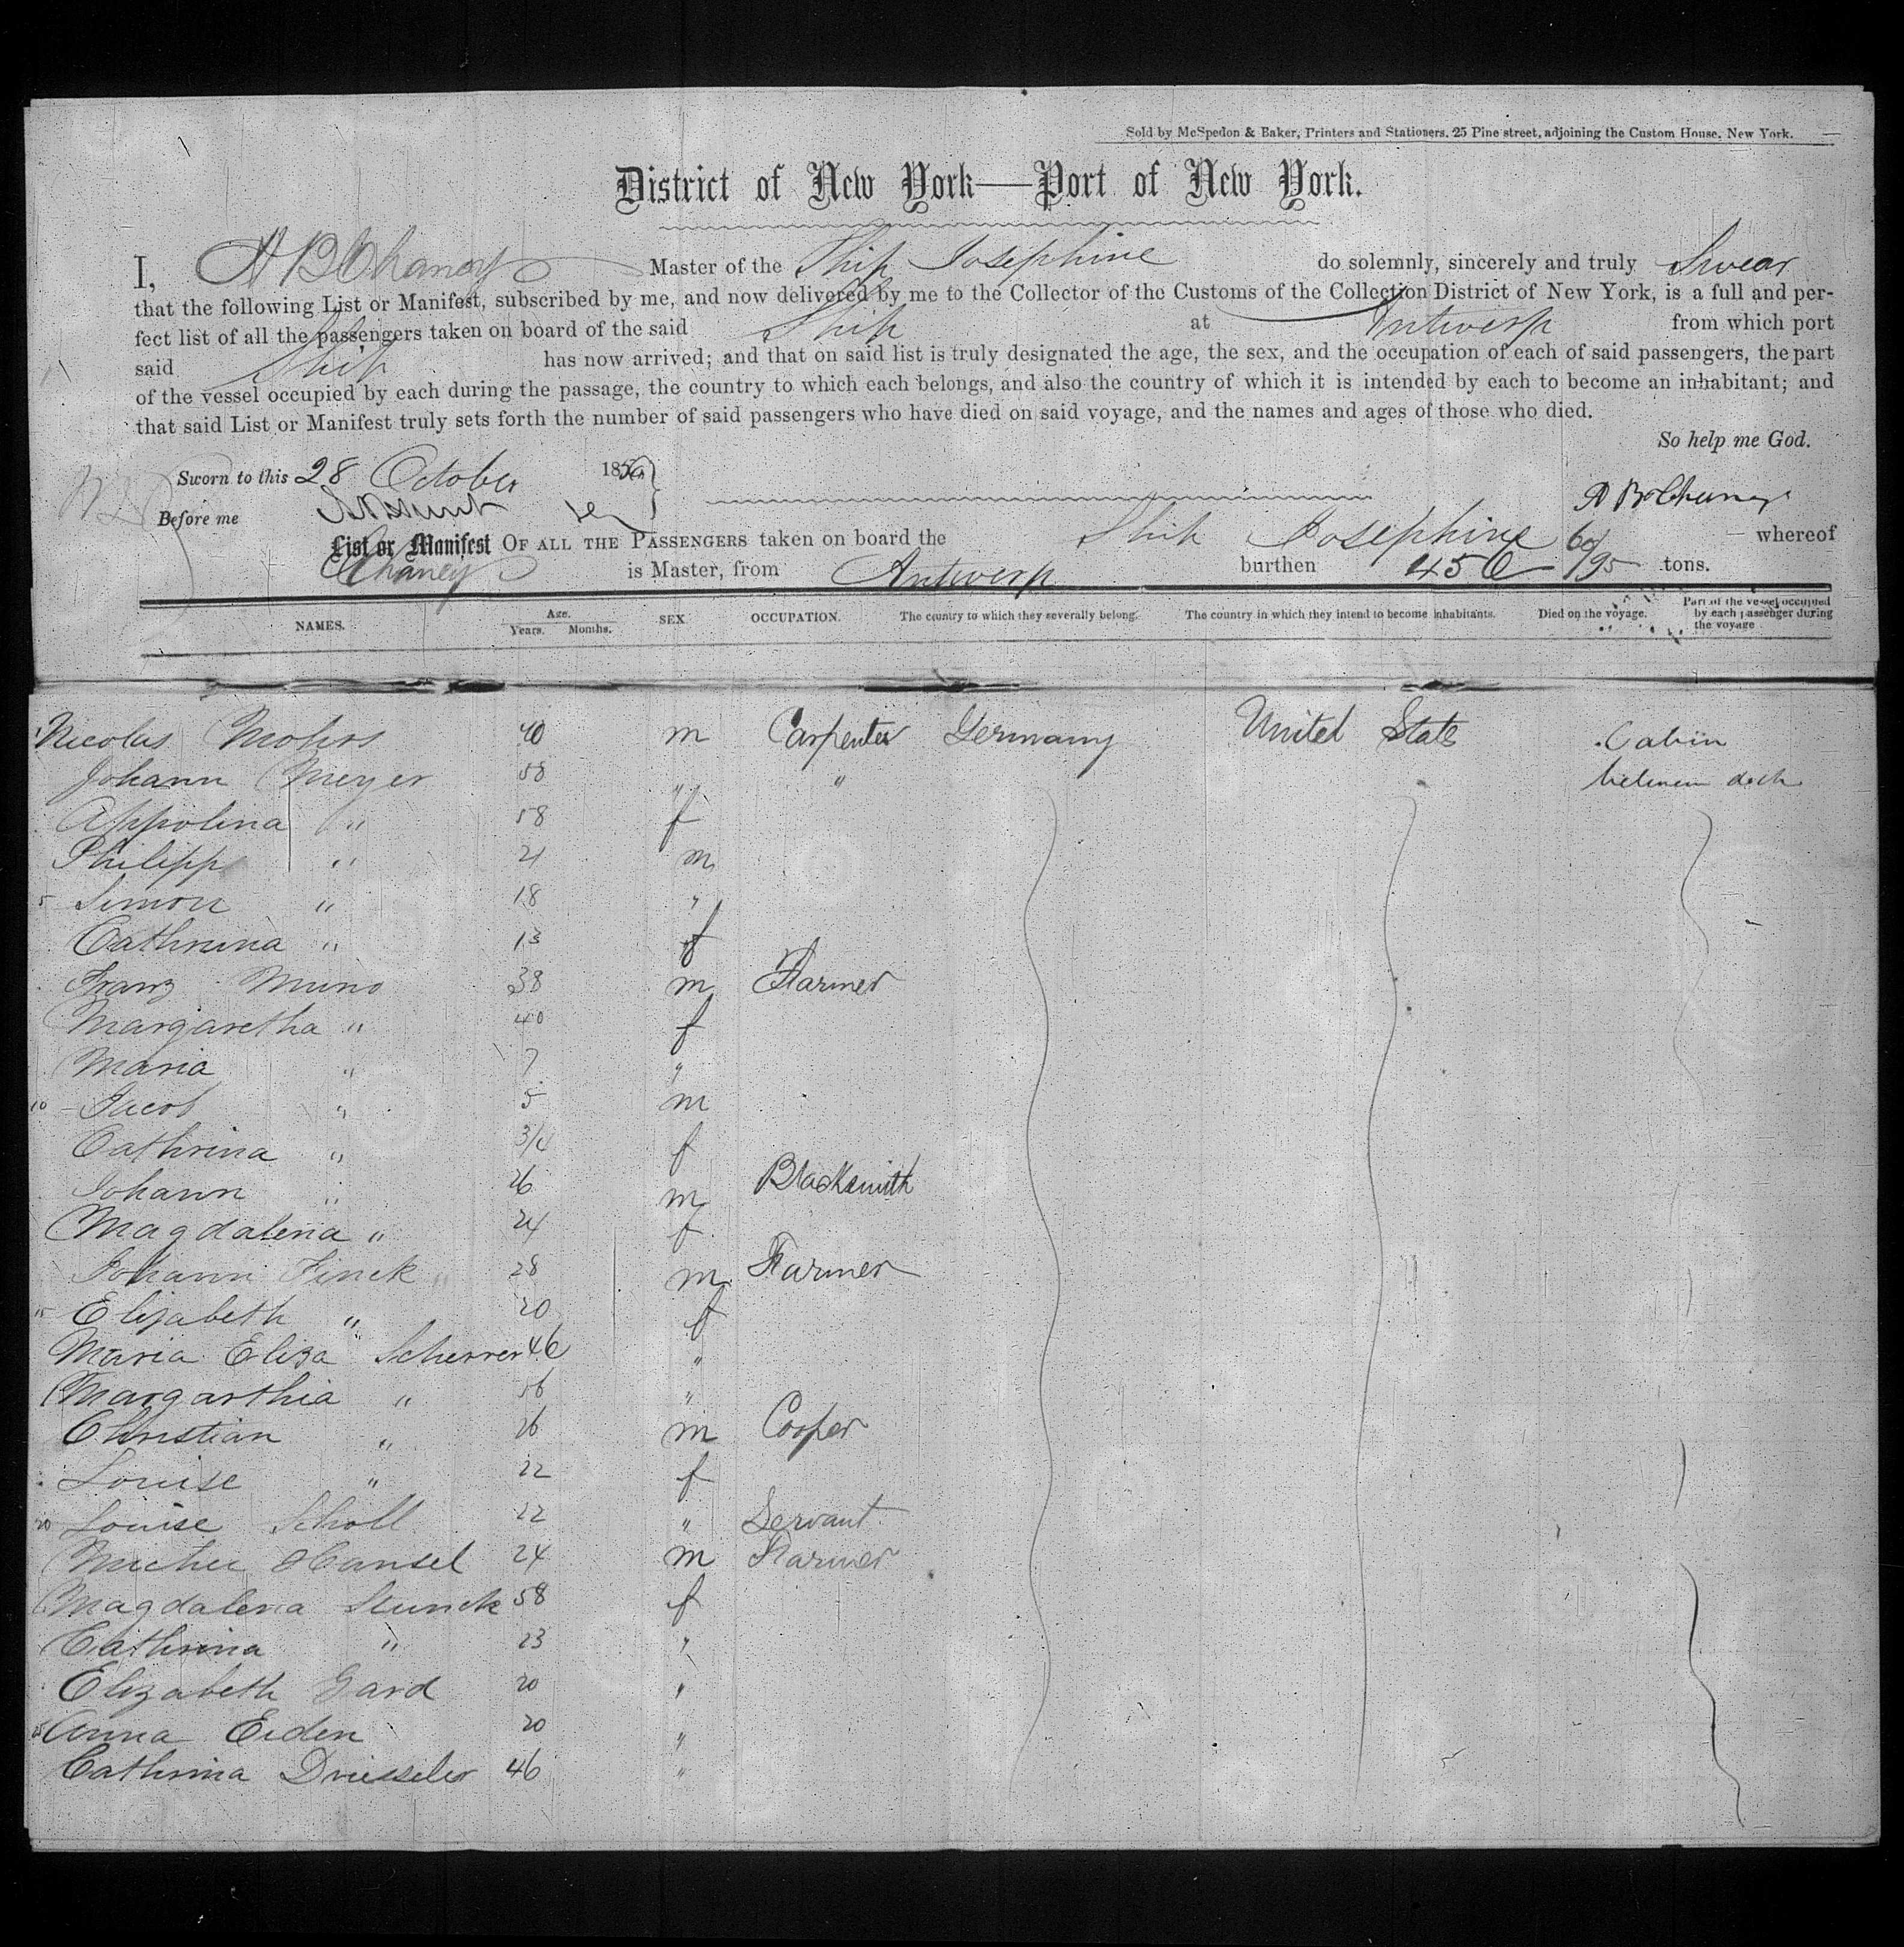 Sold by McSpedon & Baker, Printers and Stationers, 25 Pine street, adjoining the Custom House, New York.
District of New York—Port of New York.
I, A B Chaney Master of the Ship Josephine do solemnly, sincerely and truly Swear
that the following List or Manifest, subscribed by me, and now delivered by me to the Collector of the Customs of the Collection District of New York, is a full and per-
fect list of all the passengers taken on board of the said Ship at Antwerp from which port
said Ship has now arrived; and that on said list is truly designated the age, the sex, and the occupation of each of said passengers, the part
of the vessel occupied by each during the passage, the country to which each belongs, and also the country of which it is intended by each to become an inhabitant; and
that said List or Manifest truly sets forth the number of said passengers who have died on said voyage, and the names and ages of those who died.
So help me God.
Sworn to this 28 October 18
Before me
List or Manifest OF ALL THE PASSENGERS taken on board the Ship Josephine whereof
Chaney is Master, from Antwerp burthen 456 60/95 tons.
NAMES. Age. Years. Months. SEX OCCUPATION. The country to which they severally belong. The country in which they intend to become inhabitants. Died on the voyage. Part of the vessel occupied by each passenger during the voyage
1 Nicolas Mohrs 40 m Carpenter Germany United States Cabin
Johann Meyer 58 " " between deck
Appolina " 58 f
Philipp " 21 m
5 Simon " 18 "
Cathrina " 13 f
Franz Muno 38 m Farmer
Margaretha " 40 f
Maria " 7 "
10 Jacob " 5 m
Cathrina " 3/4 f
Johann " 26 m Blacksmith
Magdalena " 24 f
Johann Finck " 28 m Farmer
15 Elizabeth " 20 f
Maria Eliza Scherrer 46 "
Margarthia " 56 "
Christian " 26 m Cooper
Louise " 22 f
20 Louise Scholl 22 " Servant
Hansel 24 m Farmer
Magdalena 58 f
Cathrina " 23 "
Elizabeth Gard 20 "
25 Anna Eiden 20 "
Cathrina Driesseler 46 "